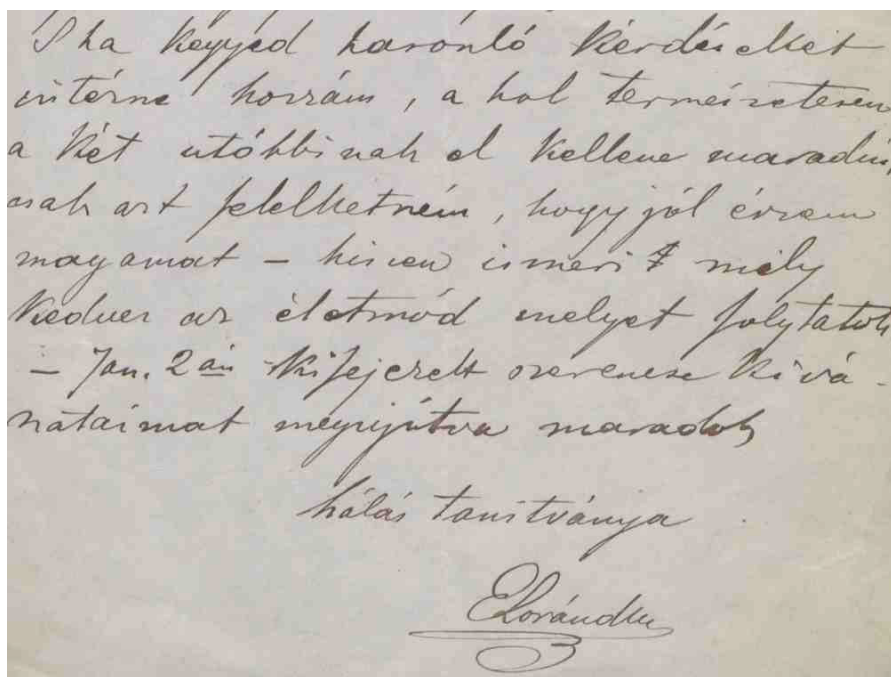 S ha kegyed hasonló kérdéseket
intézne hozzám, a hol természetesen
a két utóbbinak el kellene maradni,
csak azt felelhetném, hogy jól érzem
magamat – hiszen ismeri mily
kedves az életmód melyet folytatok
– Jan. 2án kifejezett szerencse kívá-
nataimat megujítva maradok
hálás tanítványa
ELoránd